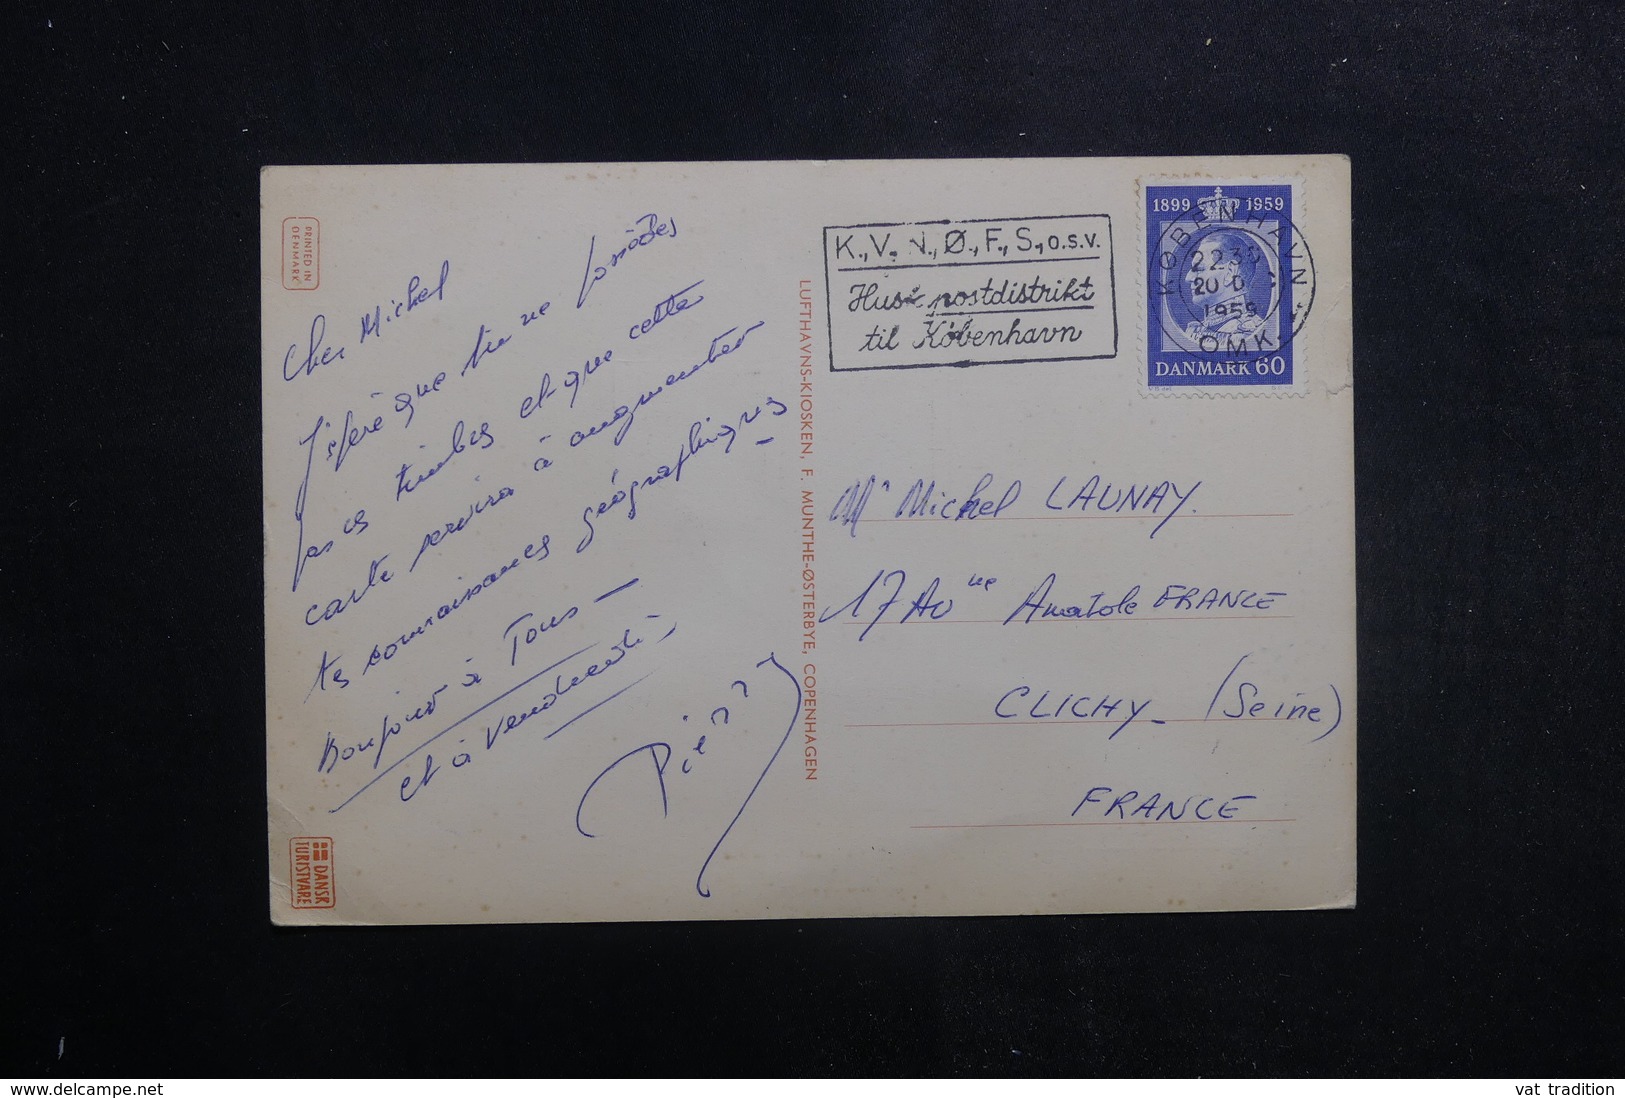 PRINTED IN
DENMARK
Cher Michel
J'espère que tu ne possèdes
pas ces timbres et que cette
carte servira à augmenter
tes connaissances géographiques
Bonjour à Tous
et à Vendredi
Pierre
DANSK
TURISTVARE
LUFTHAVNS-KIOSKEN, F. MUNTHE-ØSTERBYE, COPENHAGEN
K., V., N., Ø., F., S., o.s.v.
Husk postdistrikt
til København
1899 1959
KØBENHAVN
22.30
1959
OMK.
DANMARK 60
Mr Michel LAUNAY.
17 Av nue Anatole FRANCE
CLICHY - (Seine)
FRANCE
www.delcampe.net
vat tradition